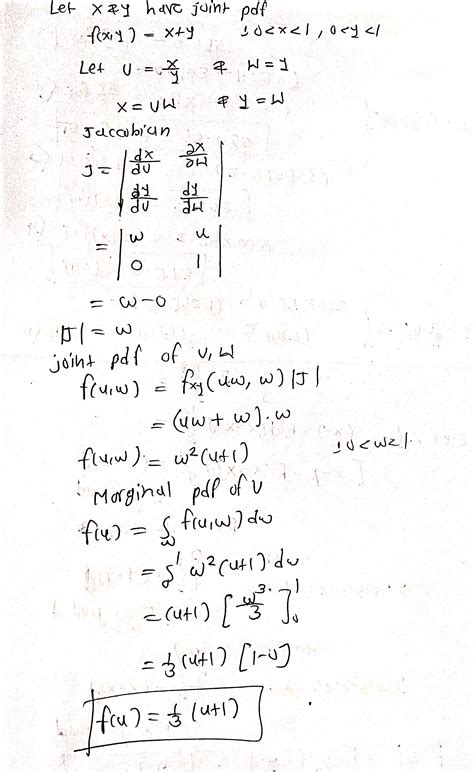 Let X & Y have joint pdf
f(x,y) = x+y ; 0<x<1, 0<y<1
Let U = x/y & W = y
x = uw & y = w
Jacobian
J = | dx/du ∂x/∂w |
| dy/du dy/dw |
= | w u |
| 0 1 |
= w-0
|J| = w
joint pdf of U, W
f(u,w) = fxy(uw, w) |J|
= (uw + w).w
f(u,w) = w²(u+1) ; 0<w<1
Marginal pdf of U
f(u) = ∫w f(u,w) dw
= ∫¹ w²(u+1) dw
= (u+1) [w³/3]₀¹
= 1/3 (u+1) [1-0]
f(u) = 1/3 (u+1)